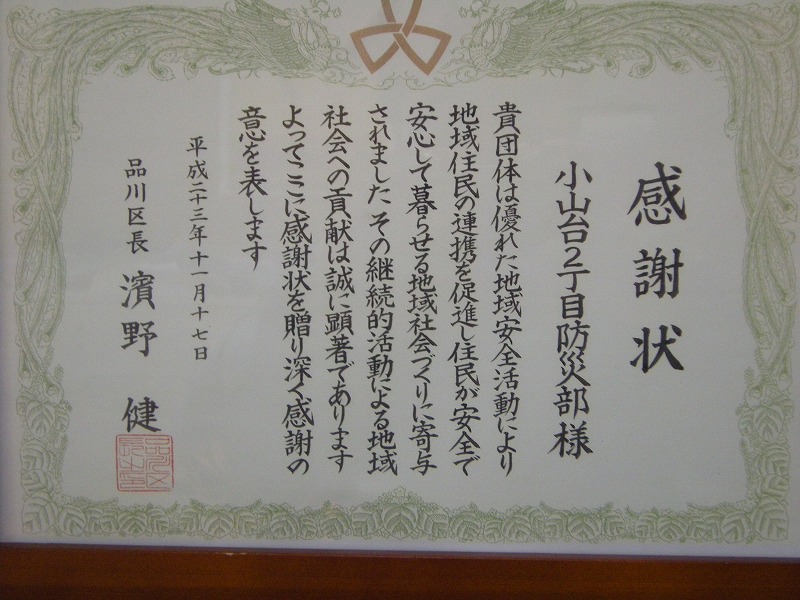 感謝状
小山台2丁目防災部様
貴団体は優れた地域安全活動により
地域住民の連携を促進し住民が安全で
安心して暮らせる地域社会づくりに寄与
されました その継続的活動による地域
社会への貢献は誠に顕著であります
よってここに感謝状を贈り深く感謝の
意を表します
平成二十三年十一月十七日
品川区長 濱野 健